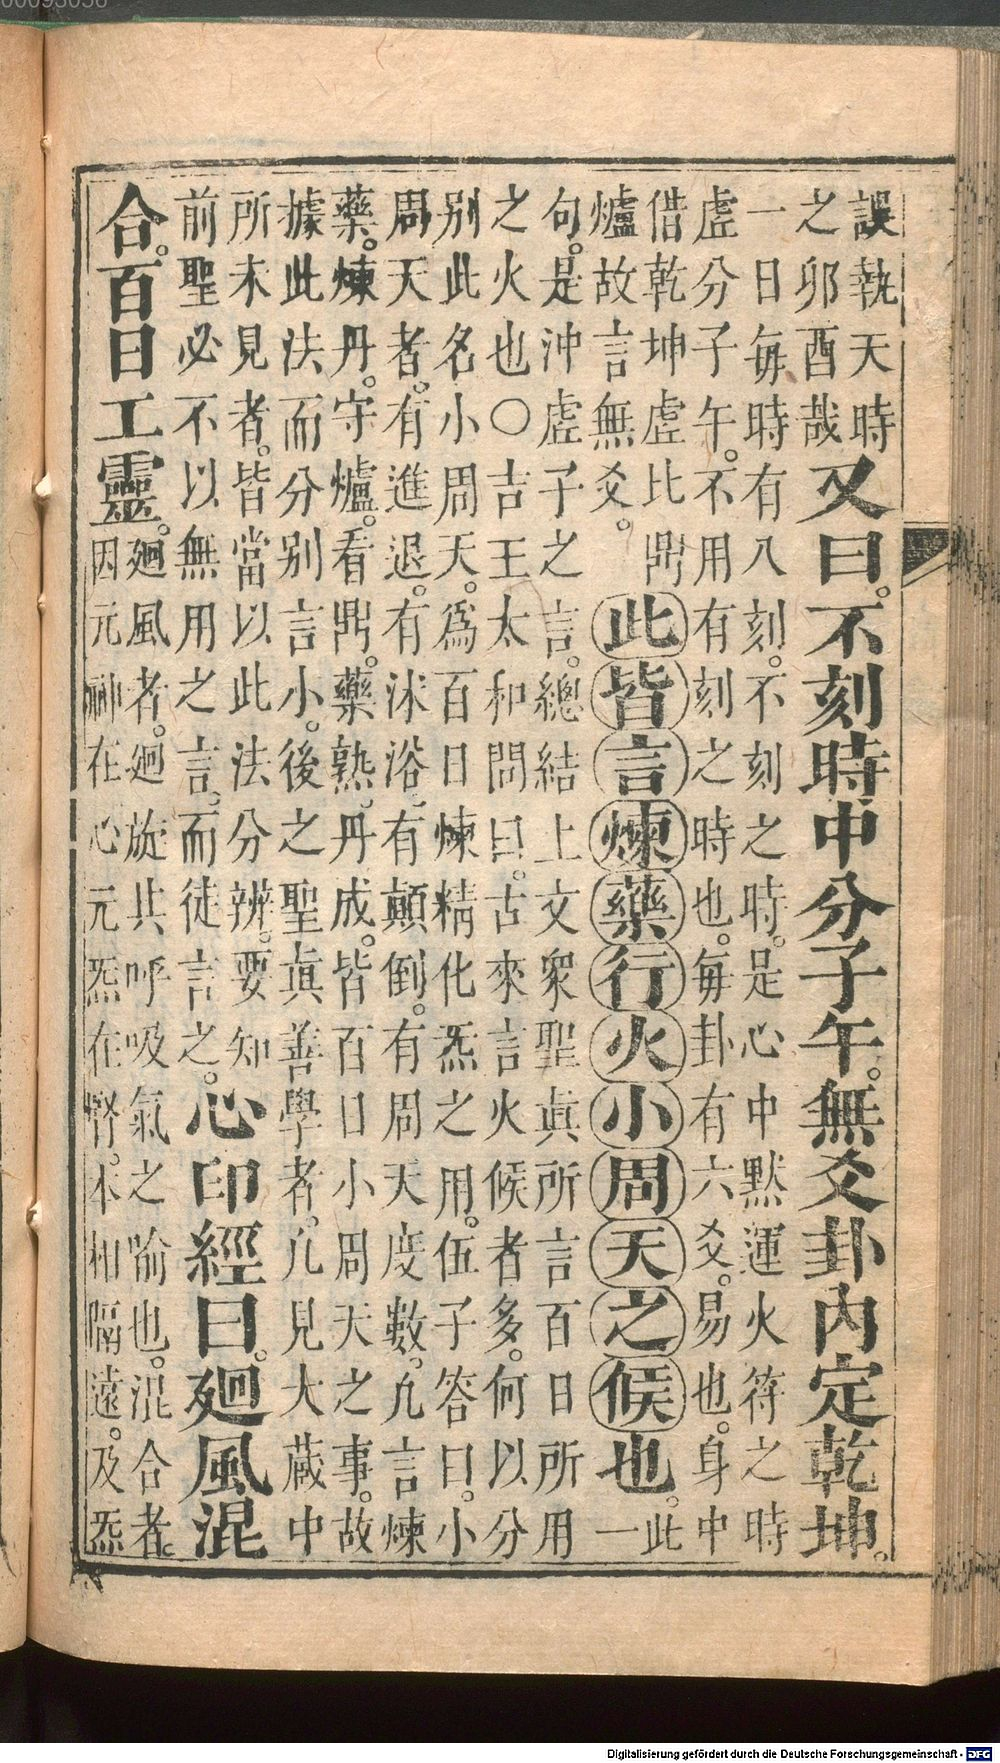 誤執天時
之卯酉哉
又曰。不刻時中分子午。無爻卦內定乾坤。
一日每時有八刻。不刻之時。是心中默運火符之時
虛分子午。不用有刻之時也。每卦有六爻。易也。身中
借乾坤虛比鼎
爐故言無爻。
此皆言煉藥行火小周天之候也。
此
一
句。是沖虛子之言。總結上文衆聖眞所言百日所用
之火也〇吉王太和問曰。古來言火候者多。何以分
别此名小周天。爲百日煉精化炁之用。伍子答曰。小
周天者。有進退。有沐浴。有顛倒。有周天度數。凢言煉
藥。煉丹。守爐。看鼎。藥熟。丹成。皆百日小周天之事。故
據此法而分别言小。後之聖眞善學者。凢見大藏中
所未見者。皆當以此法分辨。要知
前聖必不以無用之言。而徒言之。
心印經曰。廻風混
合。百日工靈。
廻風者。廻旋其呼吸氣之喻也。混合者。
因元神在心元炁在腎。本相隔遠。及炁
Digitalisierung gefördert durch die Deutsche Forschungsgemeinschaft - DFG